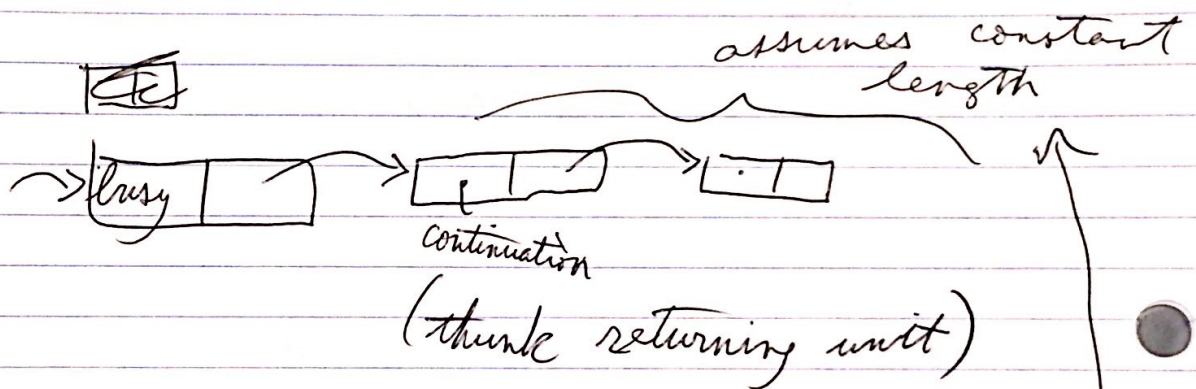 assumes constant
length
busy
continuation
(thunk returning unit)